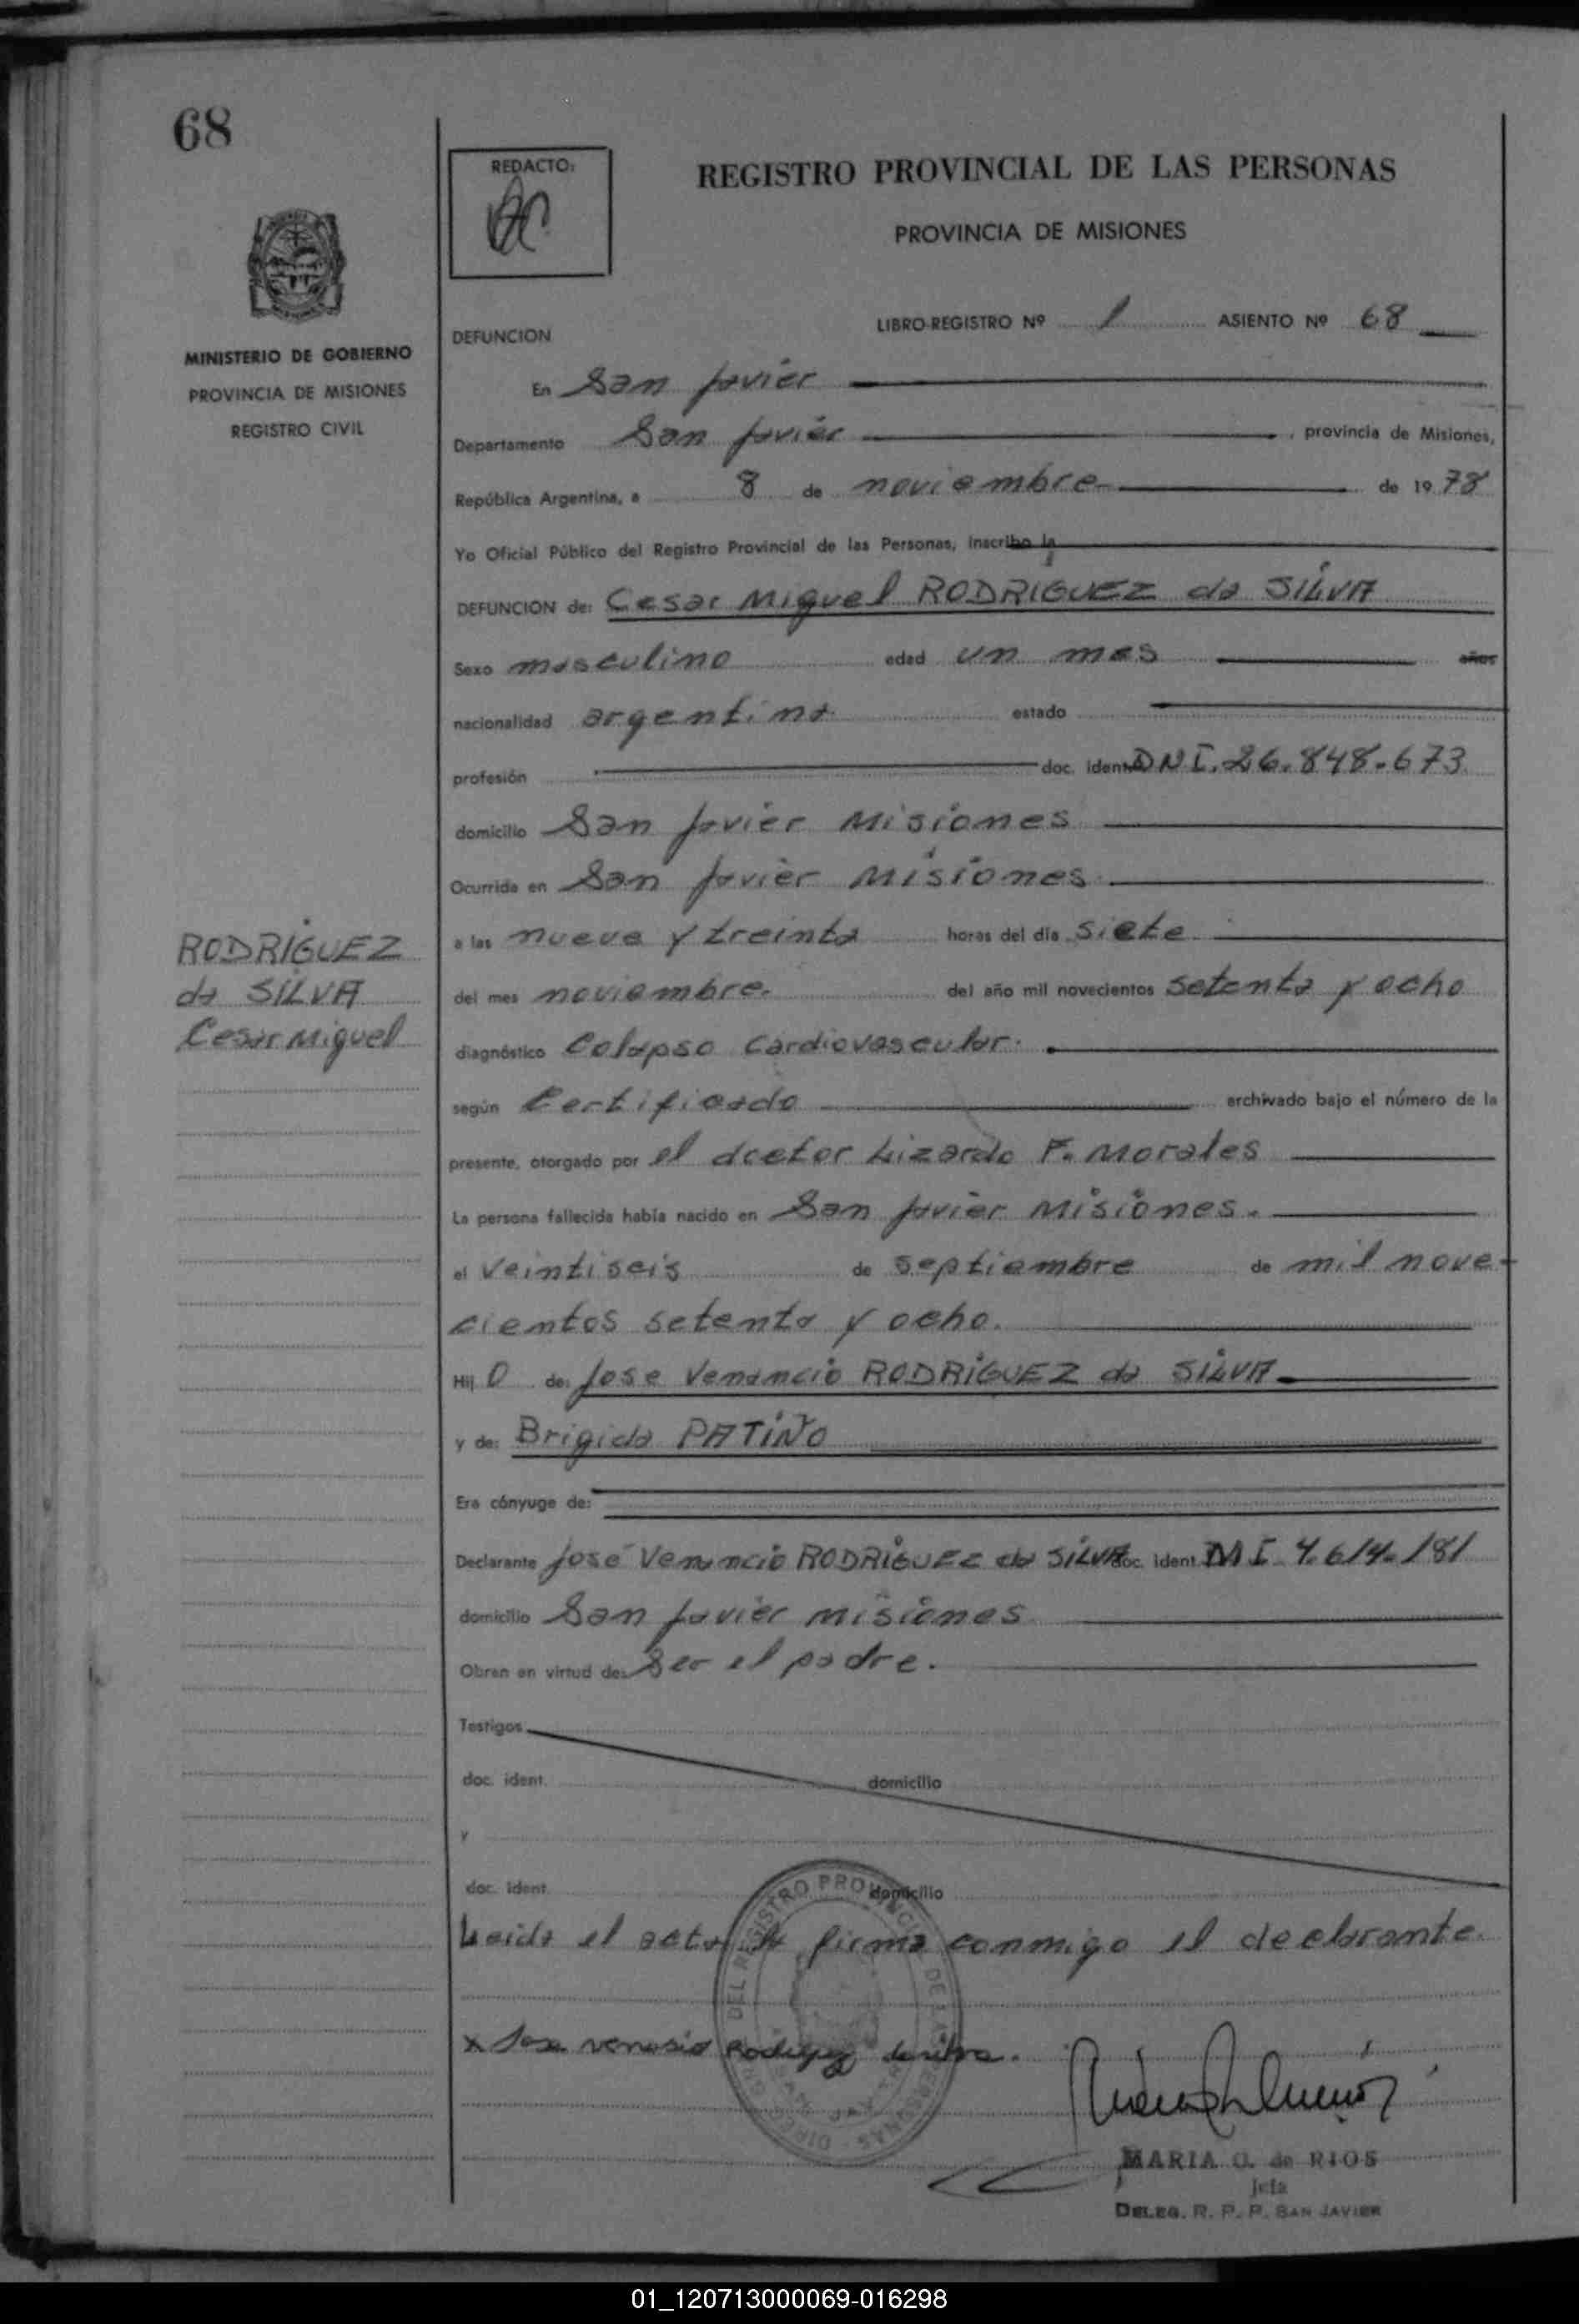 68
REDACTO:
REGISTRO PROVINCIAL DE LAS PERSONAS
PROVINCIA DE MISIONES
MINISTERIO DE GOBIERNO
PROVINCIA DE MISIONES
REGISTRO CIVIL
DEFUNCION
LIBRO-REGISTRO Nº 1 ASIENTO Nº 68
En San Javier
Departamento San Javier , provincia de Misiones,
República Argentina, a 8 de noviembre de 1978
Yo Oficial Público del Registro Provincial de las Personas, inscribo la
DEFUNCION de: Cesar Miguel RODRIGUEZ da SILVA
Sexo masculino edad un mes años
nacionalidad argentina estado
profesión doc. ident. DNI. 26.848.673
domicilio San Javier Misiones
Ocurrida en San Javier Misiones
RODRIGUEZ
da SILVA
Cesar Miguel
a las nueve y treinta horas del día siete
del mes noviembre. del año mil novecientos setenta y ocho
diagnóstico Colapso Cardiovascular.
según Certificado archivado bajo el número de la
presente, otorgado por el doctor Lizardo F. Morales
La persona fallecida había nacido en San Javier Misiones.
el veintiseis de septiembre de mil nove-
cientos setenta y ocho.
Hij O de: Jose Venancio RODRIGUEZ da SILVA
y de: Brigida PATIÑO
Era cónyuge de:
Declarante José Venancio RODRIGUEZ da SILVA doc. ident. MI 7.614.181
domicilio San Javier Misiones
Obran en virtud de: Ser el padre.
Testigos
doc. ident. domicilio
y
doc. ident. domicilio
Leida el acta la firma conmigo el declarante.
x Jose venasio Rodriguez dasilva.
MARIA O. de RIOS
Jefa
DELEG. R. P. P. SAN JAVIER
01_120713000069-016298